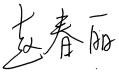 赵春丽